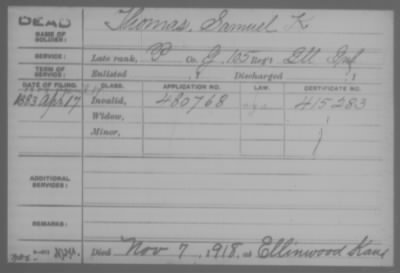 DEAD
NAME OF SOLDIER: Thomas, Samuel K
SERVICE: Late rank, P Co. G, 105 Reg't Ill Inf
TERM OF SERVICE: Enlisted , 1 Discharged , 1
DATE OF FILING. CLASS. APPLICATION NO. LAW. CERTIFICATE NO.
1883 Apr 17 Invalid, 480768 415283
Widow,
Minor,
ADDITIONAL SERVICES:
REMARKS:
Died Nov 7, 1918, at Ellinwood Kans